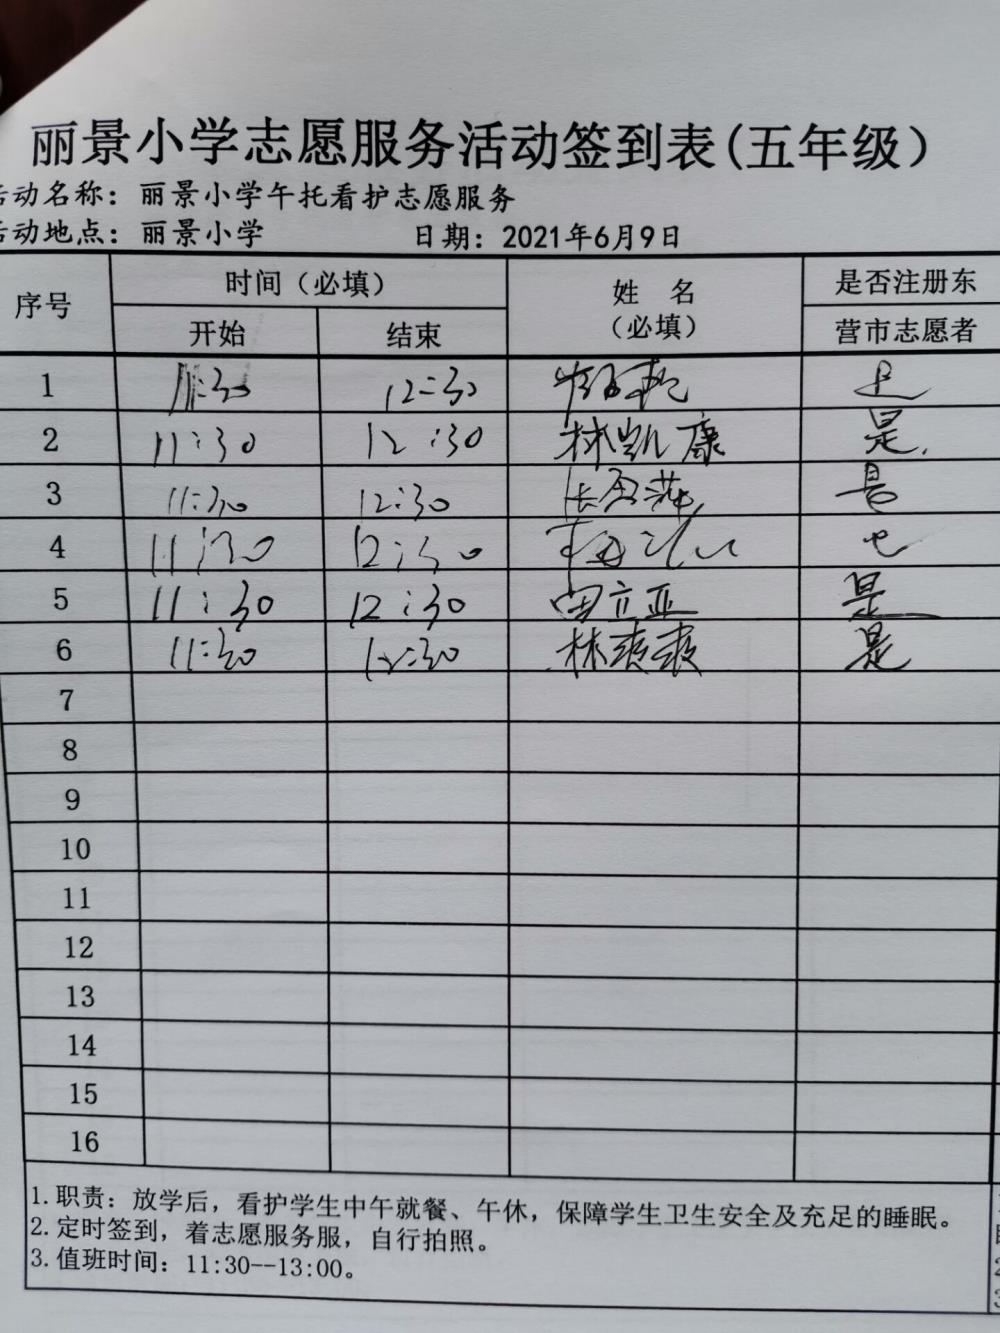 丽景小学志愿服务活动签到表(五年级)
活动名称：丽景小学午托看护志愿服务
活动地点：丽景小学 日期：2021年6月9日
序号 时间（必填） 姓 名（必填） 是否注册东营市志愿者
开始 结束
1 11:30 12:30
2 11:30 12:30 林凯康 是.
3 11:30 12:30 是
4 11:30 12:30
5 11:30 12:30 田立亚 是
6 11:30 12:30 林爽爽 是
7
8
9
10
11
12
13
14
15
16
1.职责：放学后，看护学生中午就餐、午休，保障学生卫生安全及充足的睡眠。
2.定时签到，着志愿服务服，自行拍照。
3.值班时间：11:30--13:00。